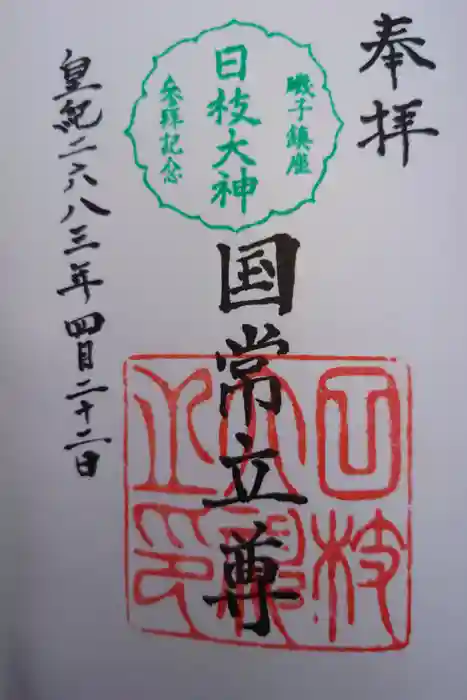 奉拝
磯子鎮座
日枝大神
参拝記念
国常立尊
皇紀二六八三年四月二十二日
日枝
大神
之印